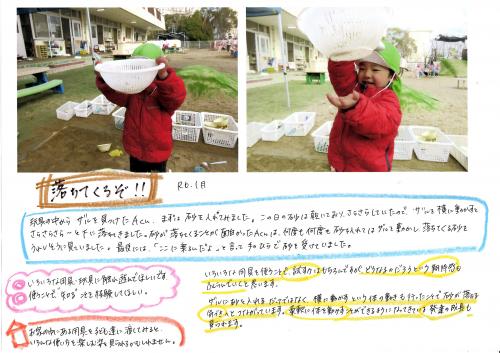 落ちてくるぞ!! R6.1月
玩具の中から ザルを見つけたAくん。まずは砂を入れてみました。この日の砂は乾いており、さらさらしていたので、ザルを横に動かすと
さらさら～と下に落ちてきました。砂が落ちてくる
は、何度も何度も砂を入れてはザルを動かし、落ちてくる砂を
うれしそうに見ていました。最後には、「ここに来るんだよ」と言って手のひらで砂を受けていました。
いろいろな用具・玩具に触れ、遊んでほしいです。
使うことで"知る"ことを体験してほしい。
お家の中にある用具を子ども達に渡してみると、
いろんな使い方を楽しむ姿を見られるかもしれません。
いろいろな用具を使うことで、試す力はもちろんですが、どうなるのだろう？と期待感も
もっていたことと思います。
ザルに砂を入れるだけではなく、横に動かすという体の動きも行ったことで砂が落ちる
ことへとつながっています。柔軟に体を動かすことができるようになってきている発達の成長も
見られます。